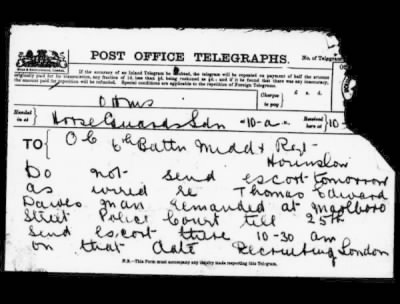 POST OFFICE TELEGRAPHS.
No. of Telegram
If the accuracy of an Inland Telegram be doubted, the telegram will be repeated on payment of half the amount
originally paid for its transmission, any fraction of 1d. less than ½d. being reckoned as ½d.; and if it be found that there was any inaccuracy,
the amount paid for repetition will be refunded. Special conditions are applicable to the repetition of Foreign Telegrams.
OHMS
Charges to pay
£ s. d.
Handed in at
Horse Guards Ldn 10-a
Received here at
10-
TO
O C 6th Battn Middx Regt
Hounslow
Do not send escort tomorrow
as wired re Thomas Edward
Dawes man remanded at Marlboro
Street Police Court till 25th
send escort there 10-30 am
on that date Recruiting London
N.B.—This Form must accompany any inquiry made respecting this Telegram.